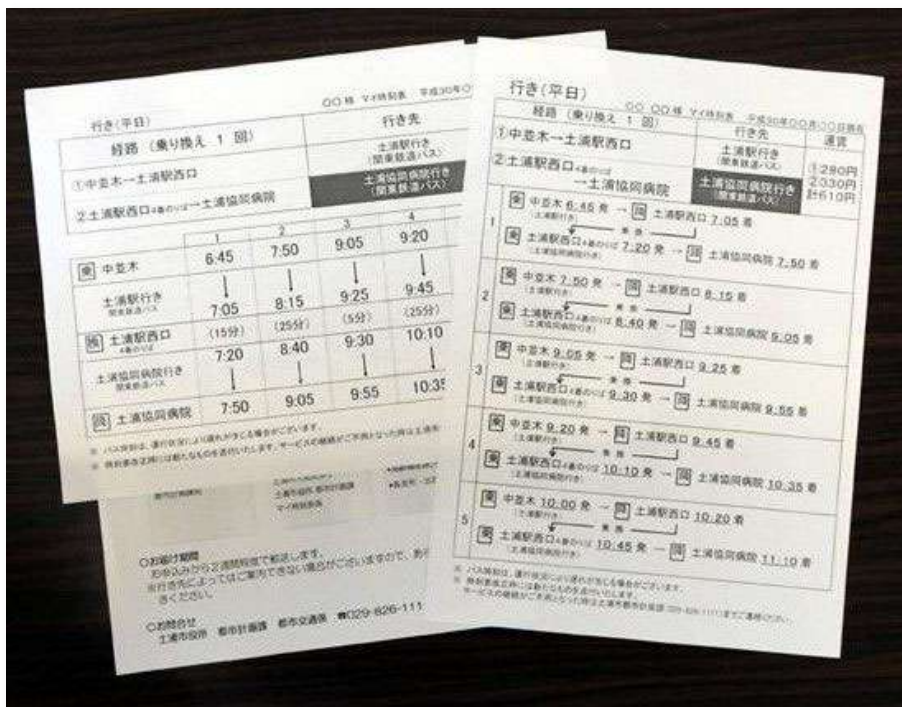 行き(平日)
○○ 様 マイ時刻表 平成30年○
経路 (乗り換え 1 回)
行き先
①中並木→土浦駅西口
土浦駅行き
(関東鉄道バス)
②土浦駅西口4番のりば→土浦協同病院
土浦協同病院行き
(関東鉄道バス)
1 2 3 4
乗 中並木 6:45 7:50 9:05 9:20
土浦駅行き
関東鉄道バス
↓ ↓ ↓ ↓
7:05 8:15 9:25 9:45
土浦駅西口 (15分) (25分) (5分) (25分)
4番のりば
7:20 8:40 9:30 10:10
土浦協同病院行き
関東鉄道バス
↓ ↓ ↓ ↓
土浦協同病院 7:50 9:05 9:55 10:35
※ バス時刻は、運行状況により遅れが生じる場合がございます。
※ 時刻表改正時には新たなものを送付いたします。サービスの継続がご不用となった時は土浦市
土浦市役所 都市計画課
マイ時刻表係
○お届け期間
お申込みから2週間程度で郵送します。
※行き先によってはご案内できない場合がございますので、
ください。
○お問合せ
土浦市役所 都市計画課 都市交通係 ☎029-826-111
行き(平日)
○○ ○○ 様 マイ時刻表 平成30年○○月○○日現在
経路 (乗り換え 1 回)
行き先
運賃
①中並木→土浦駅西口
土浦駅行き
(関東鉄道バス)
①280円
②土浦駅西口4番のりば
→土浦協同病院
土浦協同病院行き
(関東鉄道バス)
②330円
計610円
1
乗 中並木 6:45 発 → 土浦駅西口 7:05 着
(土浦駅行き)
乗換
乗 土浦駅西口4番のりば 7:20 発 → 土浦協同病院 7:50 着
(土浦協同病院行き)
2
乗 中並木 7:50 発 → 土浦駅西口 8:15 着
(土浦駅行き)
乗換
乗 土浦駅西口4番のりば 8:40 発 → 土浦協同病院 9:05 着
(土浦協同病院行き)
3
乗 中並木 9:05 発 → 土浦駅西口 9:25 着
(土浦駅行き)
乗換
乗 土浦駅西口4番のりば 9:30 発 → 土浦協同病院 9:55 着
(土浦協同病院行き)
4
乗 中並木 9:20 発 → 土浦駅西口 9:45 着
(土浦駅行き)
乗換
乗 土浦駅西口4番のりば 10:10 発 → 土浦協同病院 10:35 着
(土浦協同病院行き)
5
乗 中並木 10:00 発 → 土浦駅西口 10:20 着
(土浦駅行き)
乗換
乗 土浦駅西口4番のりば 10:45 発 → 土浦協同病院 11:10 着
(土浦協同病院行き)
※ バス時刻は、運行状況により遅れが生じる場合がございます。
※ 時刻表改正時には新たなものを送付いたします。
サービスの継続がご不用となった時は土浦市都市計画課(029-826-1111)までご連絡ください。